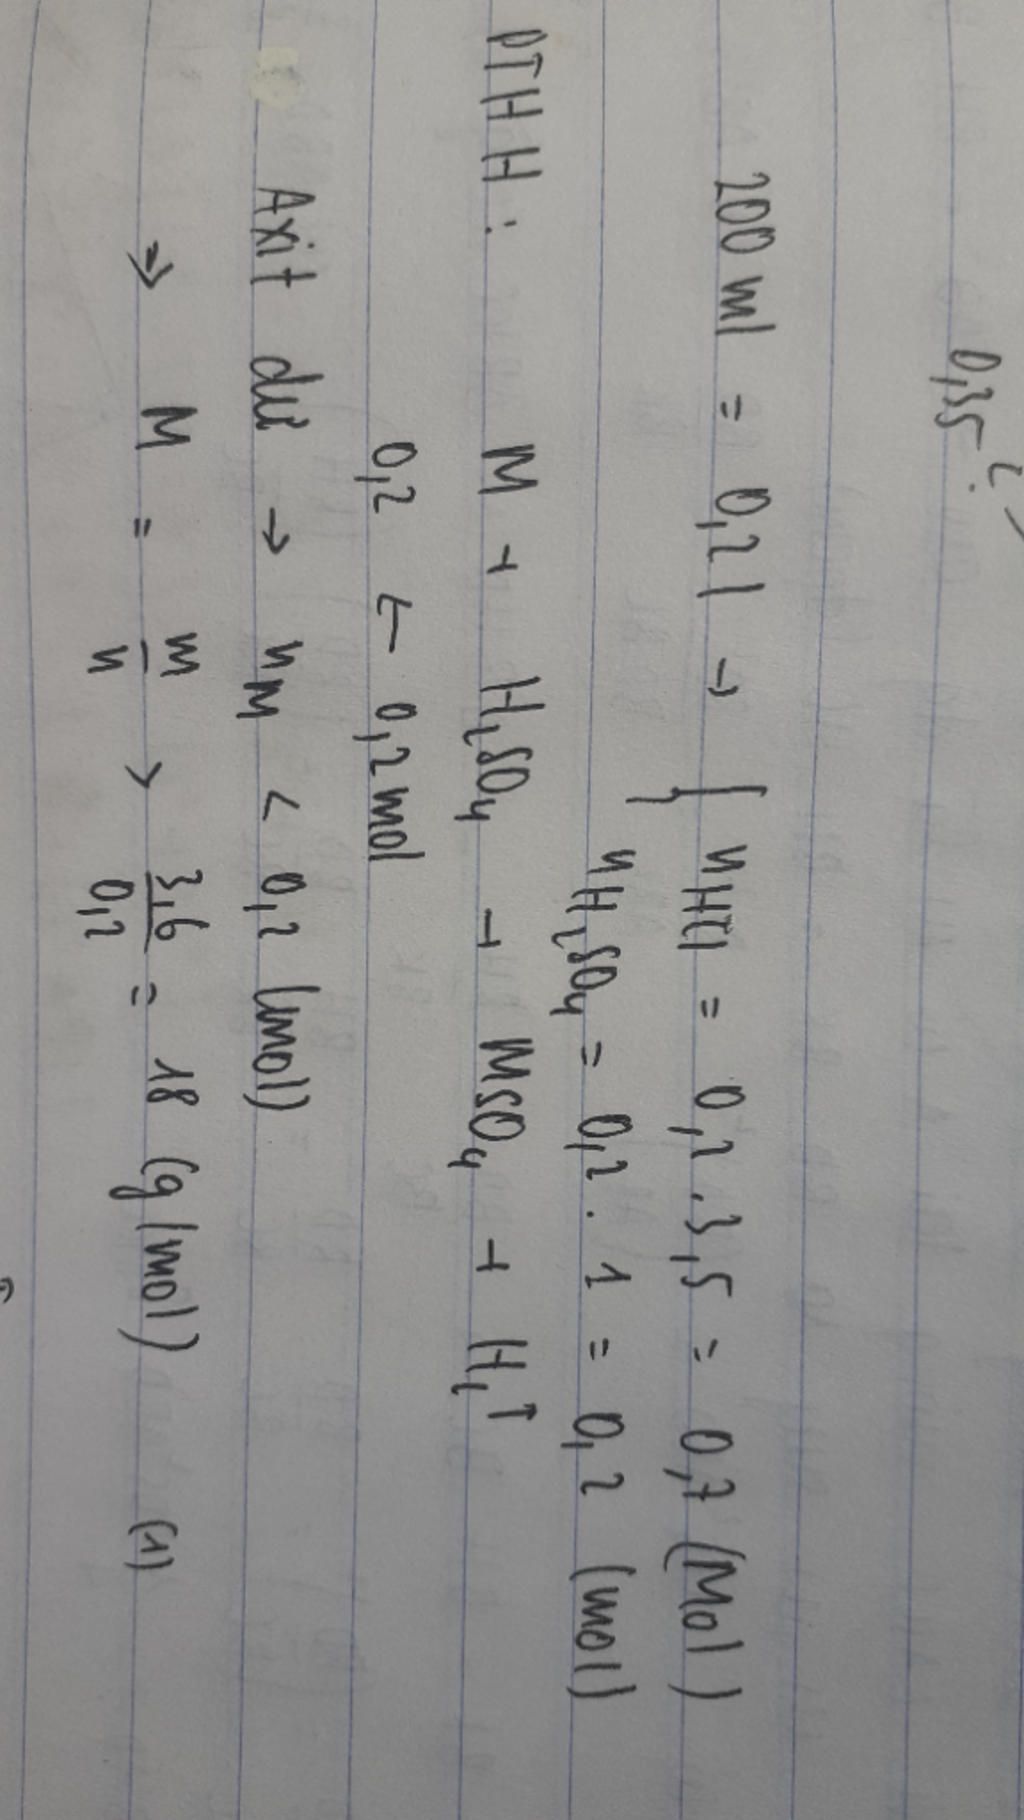 0,35
200 ml = 0,2 l → { nHCl = 0,2 . 3,5 = 0,7 (Mol)
nH₂SO₄ = 0,2 . 1 = 0,2 (mol)
PTHH : M + H₂SO₄ → MSO₄ + H₂↑
0,2 ← 0,2 mol
Axit dư → nM < 0,2 (mol)
⇒ M = m/n > 3,6/0,2 = 18 (g/mol) (1)